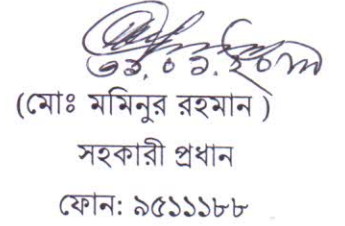 (মোঃ মমিনুর রহমান )
সহকারী প্রধান
ফোন: ৯৫১১১৮৮